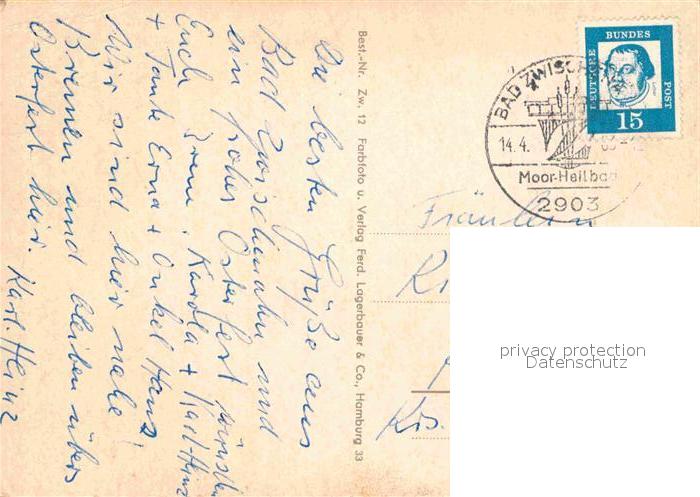 Die besten Grüße aus
Bad Zwischenahn und
ein frohes Osterfest wünschen
Euch Irene, Karola + Karl-Heinz
+ Tante Erna + Onkel Hans!
Wir sind hier nahe
Bremen und bleiben übers
Osterfest hier. Karl-Heinz
Best.-Nr. Zw. 12 Farbfoto u. Verlag Ferd. Lagerbauer & Co., Hamburg 33
DEUTSCHE BUNDES POST
15
BAD ZWISCH
14.4.
Moor-Heilbad
2903
Fräulein
Krs.
privacy protection
Datenschutz